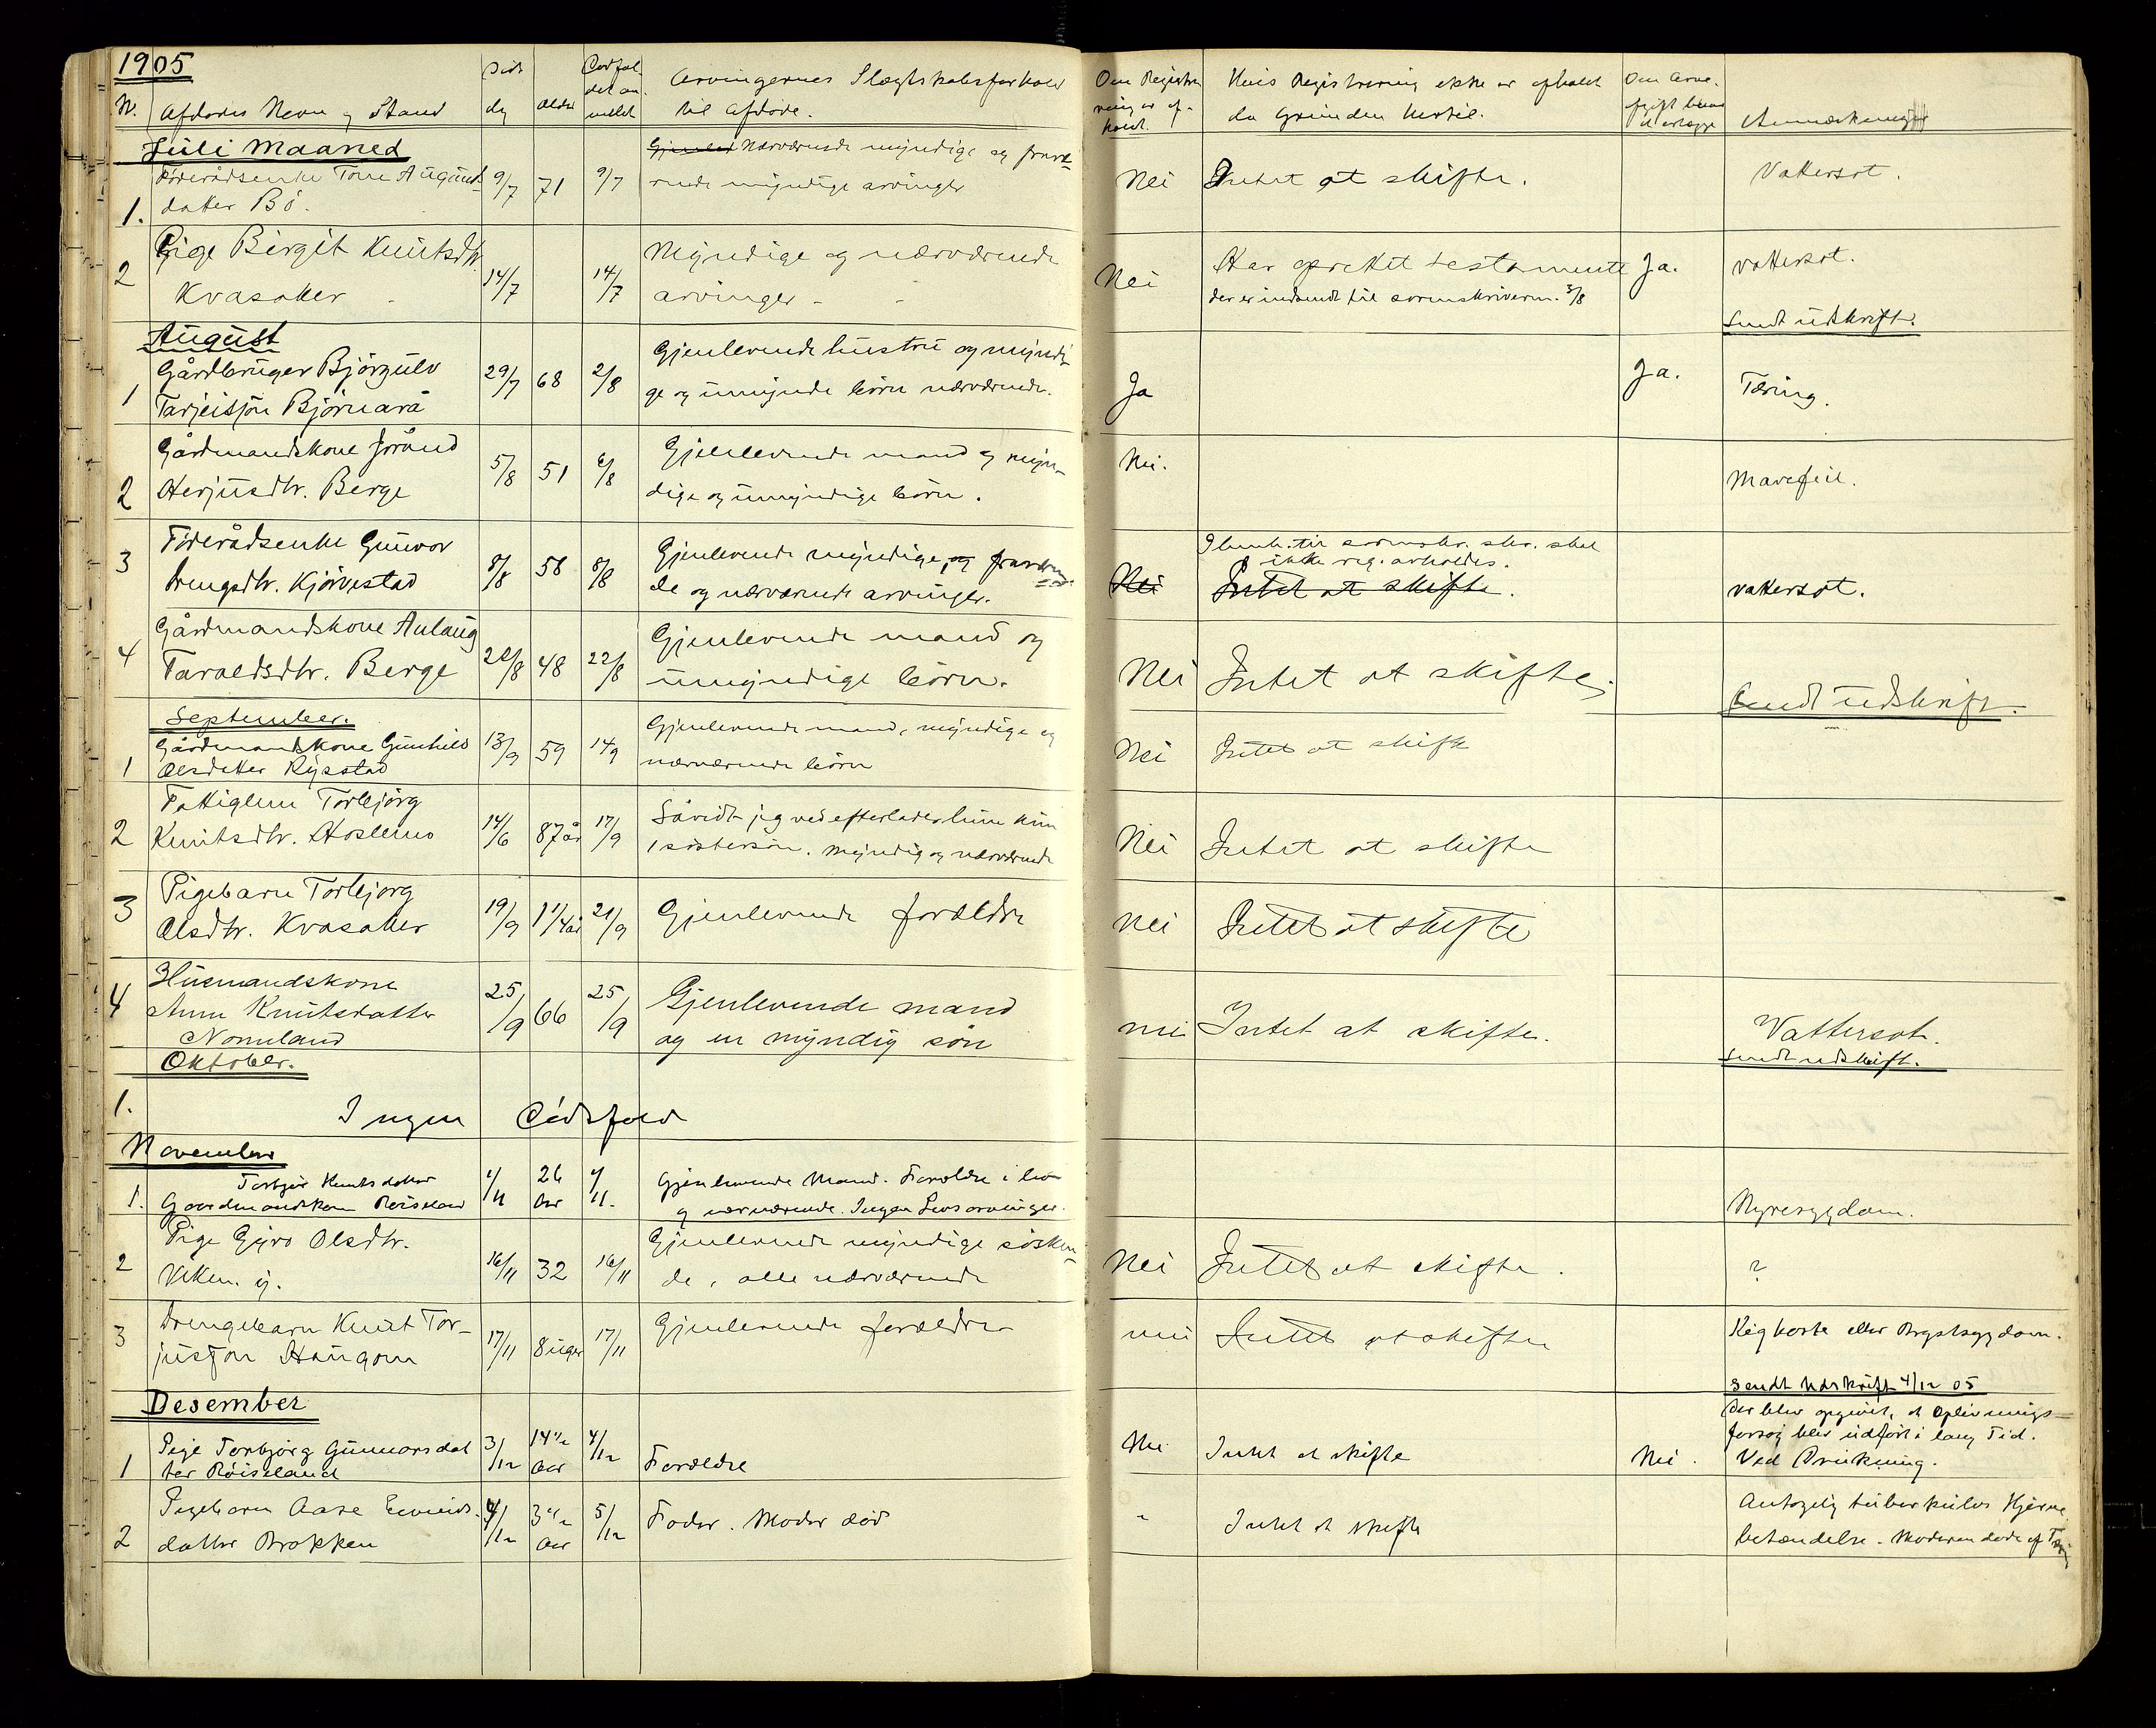 1905
Nr. Afdødes Navn og Stand
Døds dag
Alder
Dødsfaldet anmeldt
Arvingernes Slægtskabsforhold til Afdøde.
Om Registrering er afholdt.
Hvis Registrering ikke er afholdt da Grunden hertil.
Anmærkninger
Juli Maaned
1. Föderådsenke Tone Augunds- 9/7 71 9/7 Nærværende myndige og fravæ- Nei Intet at skifte. Vattersot.
datter Bö. rende myndige arvinger
2 Pige Birgit Knutsdtr. 14/7 14/7 Myndige og nærværende Nei Har oprettet testamente Ja. vattersot.
Kvasaker arvinger - der er indsendt til sorenskriveren. 3/8
Sendt udskrift.
August
1 Gårdbruger Björgulv 29/7 68 2/8 Gjenlevende hustru og myndi- Ja Ja. Tæring.
Tarjeisjön Björnarå ge og umynde börn nærværende.
2 Gårdmandskone Jorånd 5/8 51 6/8 Gjenlevende mand og myn- Nei. Mavefeil.
Herjusdtr. Berge dige og umyndige börn.
3 Föderådsenke Gunvor 8/8 58 8/8 Gjenlevende myndige, og fraværen- Nei Intet at skifte. vattersot.
Drengsdtr. Kjörvestad de og nærværende arvinger. ikke reg. avholdes.
4 Gårdmandskone Anlaug 22/8 48 22/8 Gjenlevende mand og Nei Intet at skifte.
Taraldsdtr. Berge umyndige börn. Sendt udskrift.
September.
1 Gårdmandskone Gunhild 13/9 59 14/9 Gjenlevende mand, myndige og Nei Intet at skifte
Olsdatter Rysstad nærværende börn
2 Fattiglem Torbjörg 14/6 87 år 17/9 Såvidt jeg ved efterlader hun kun Nei Intet at skifte
Knutsdtr. Hoslemo 1 söstersön. myndig og nærværende
3 Pigebarn Torbjorg 19/9 1 1/4 år 21/9 Gjenlevende forældre Nei Intet at skifte
Olsdtr. Kvasaker
4 Husmandskone 25/9 66 25/9 Gjenlevende mand nei Intet at skifte. Vattersot.
Anne Knutsdatter og en myndig sön
Nomeland Sendt udskrift.
Oktober.
1. Ingen Dödsfald
November
1. Torbjör Knutsdatter 1/11 26 Aar 4/11. Gjenlevende Mand. Forældre i liv Nyresygdom.
Gaardmandskone Röisland og nærværende. Ingen Livsarvinger.
2 Pige Gyro Olsdtr. 16/11 32 16/11 Gjenlevende myndige sösken- Nei Intet at skifte. ?
Viken. y. de, alle nærværende
3 Drengebarn Knut Tor- 17/11 8 uger 17/11 Gjenlevende forældre nei Intet at skifte Kighoste eller Brystsygdom.
jusjon Haugom
Sendt Udskrift 4/12 05
Desember
1 Pige Torbjörg Gunnarsdat 3/12 14 1/2 Aar 4/12 Forældre Nei Intet at skifte Nei. Der blev opgivet, at Oplivnings-
ter Röisland forsög blev udfört i lang Tid.
Ved Drukning.
2 Pigebarn Aase Eivinds- 4/12 3 1/2 Aar 5/12 Fader. Moder död " Intet at skifte Antagelig tuberkulos Hjerne
datter Brokken betændelse. Moderen döde af Tæring